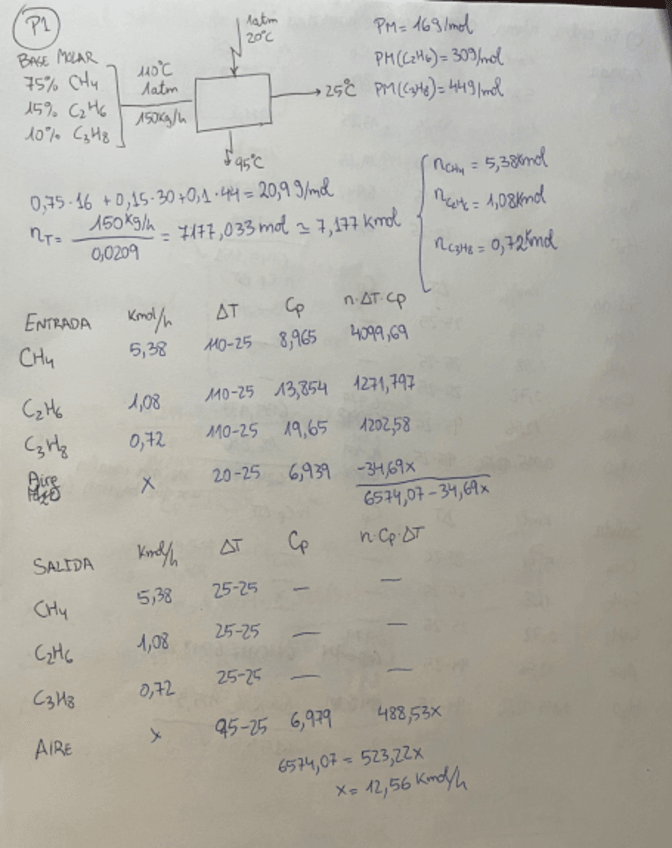 P1
BASE MOLAR
75% CH4
15% C2H6
10% C3H8
110°C
1atm
150Kg/h
1atm
20°C
→25°C
95°C
PM= 16g/mol
PM(C2H6)= 30g/mol
PM(C3H8)= 44g/mol
0,75·16 + 0,15·30+0,1·44 = 20,9 g/mol
nT= 150Kg/h / 0,0209 = 7177,033 mol ≃ 7,177 Kmol
nCH4 = 5,38Kmol
nC2H6 = 1,08Kmol
nC3H8 = 0,72Kmol
ENTRADA Kmol/h ΔT Cp n·ΔT·Cp
CH4 5,38 110-25 8,965 4099,69
C2H6 1,08 110-25 13,854 1271,797
C3H8 0,72 110-25 19,65 1202,58
Aire x 20-25 6,939 -34,69x
H2O
6574,07-34,69x
SALIDA Kmol/h ΔT Cp n·Cp·ΔT
CH4 5,38 25-25 — —
C2H6 1,08 25-25 — —
C3H8 0,72 25-25 — —
AIRE x 95-25 6,979 488,53x
6574,07 = 523,22x
x= 12,56 Kmol/h